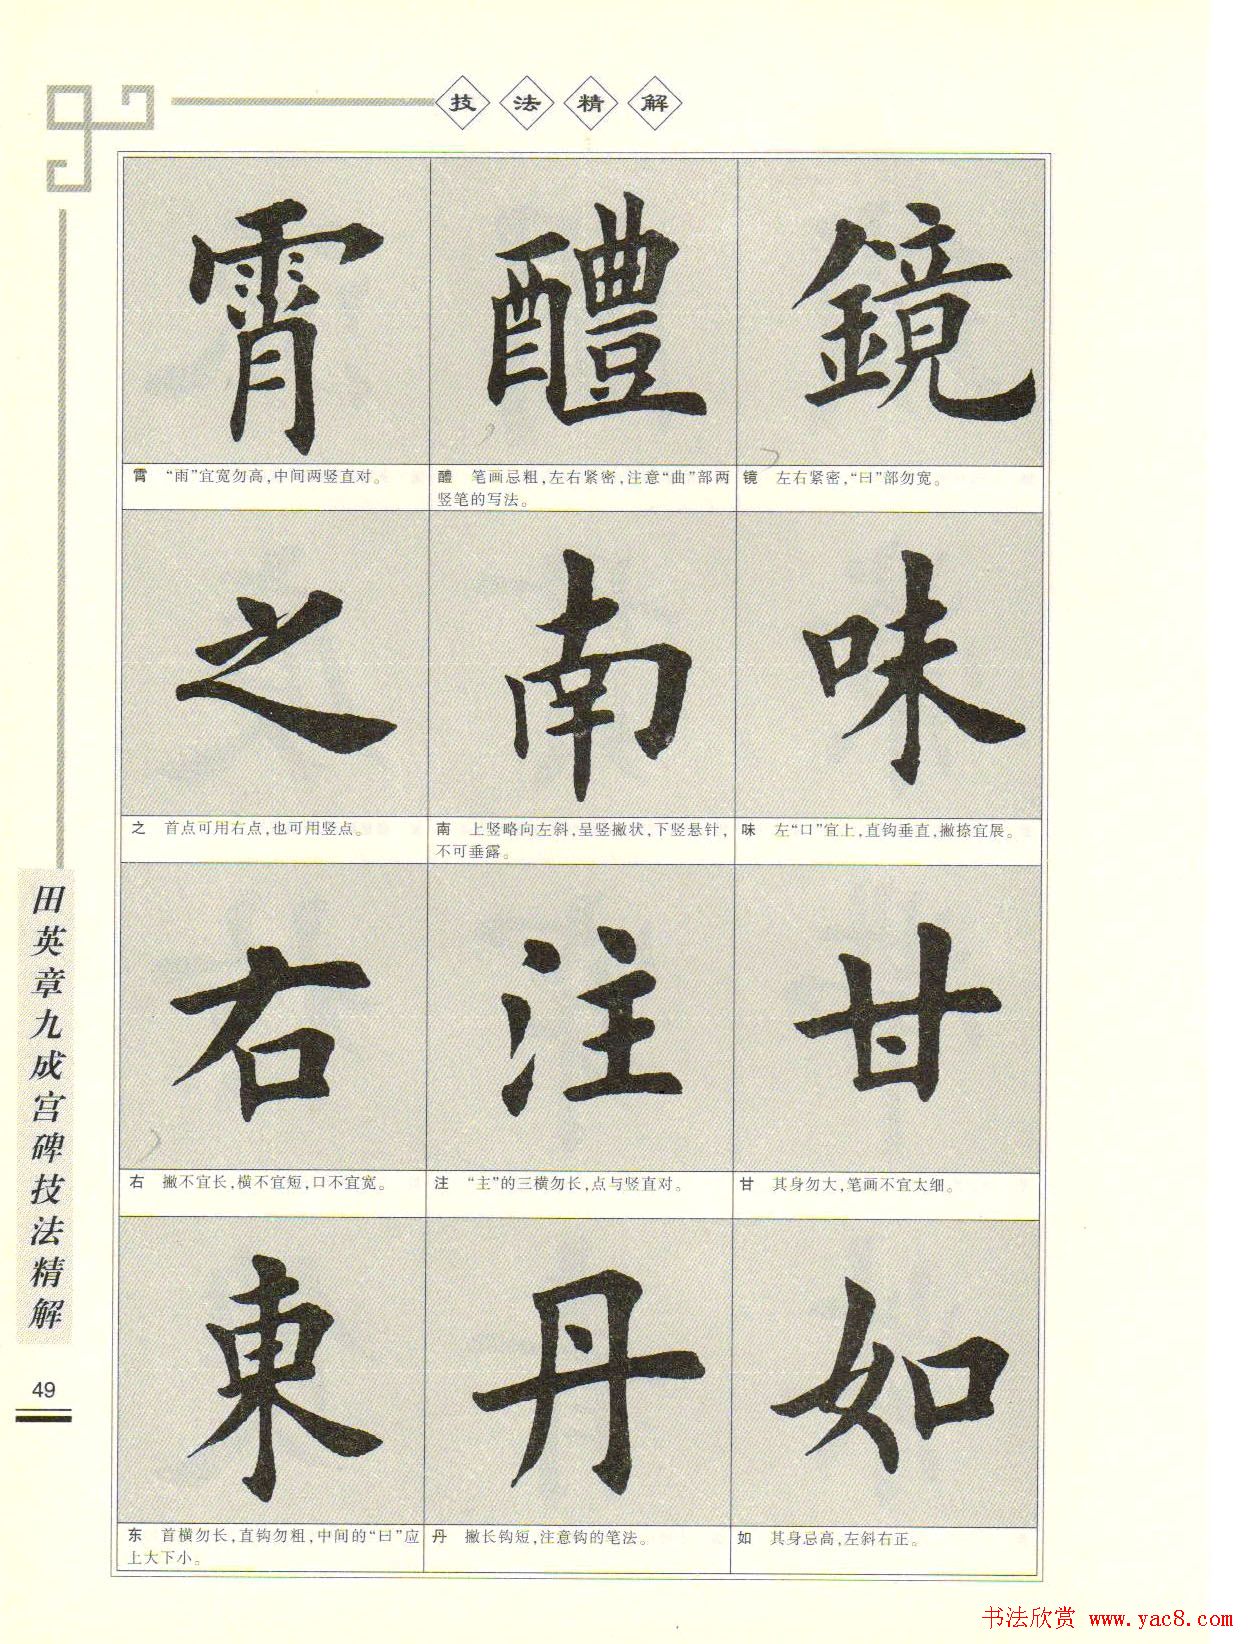 技法精解
霄 醴 鏡
霄 “雨”宜宽勿高,中间两竖直对。
醴 笔画忌粗,左右紧密,注意“曲”部两
竖笔的写法。
镜 左右紧密,“曰”部勿宽。
之 南 味
之 首点可用右点,也可用竖点。
南 上竖略向左斜,呈竖撇状,下竖悬针,
不可垂露。
味 左“口”宜上,直钩垂直,撇捺宜展。
右 注 甘
右 撇不宜长,横不宜短,口不宜宽。
注 “主”的三横勿长,点与竖直对。
甘 其身勿大,笔画不宜太细。
東 丹 如
东 首横勿长,直钩勿粗,中间的“曰”应
上大下小。
丹 撇长钩短,注意钩的笔法。
如 其身忌高,左斜右正。
田英章九成宫碑技法精解
49
书法欣赏 www.yac8.com